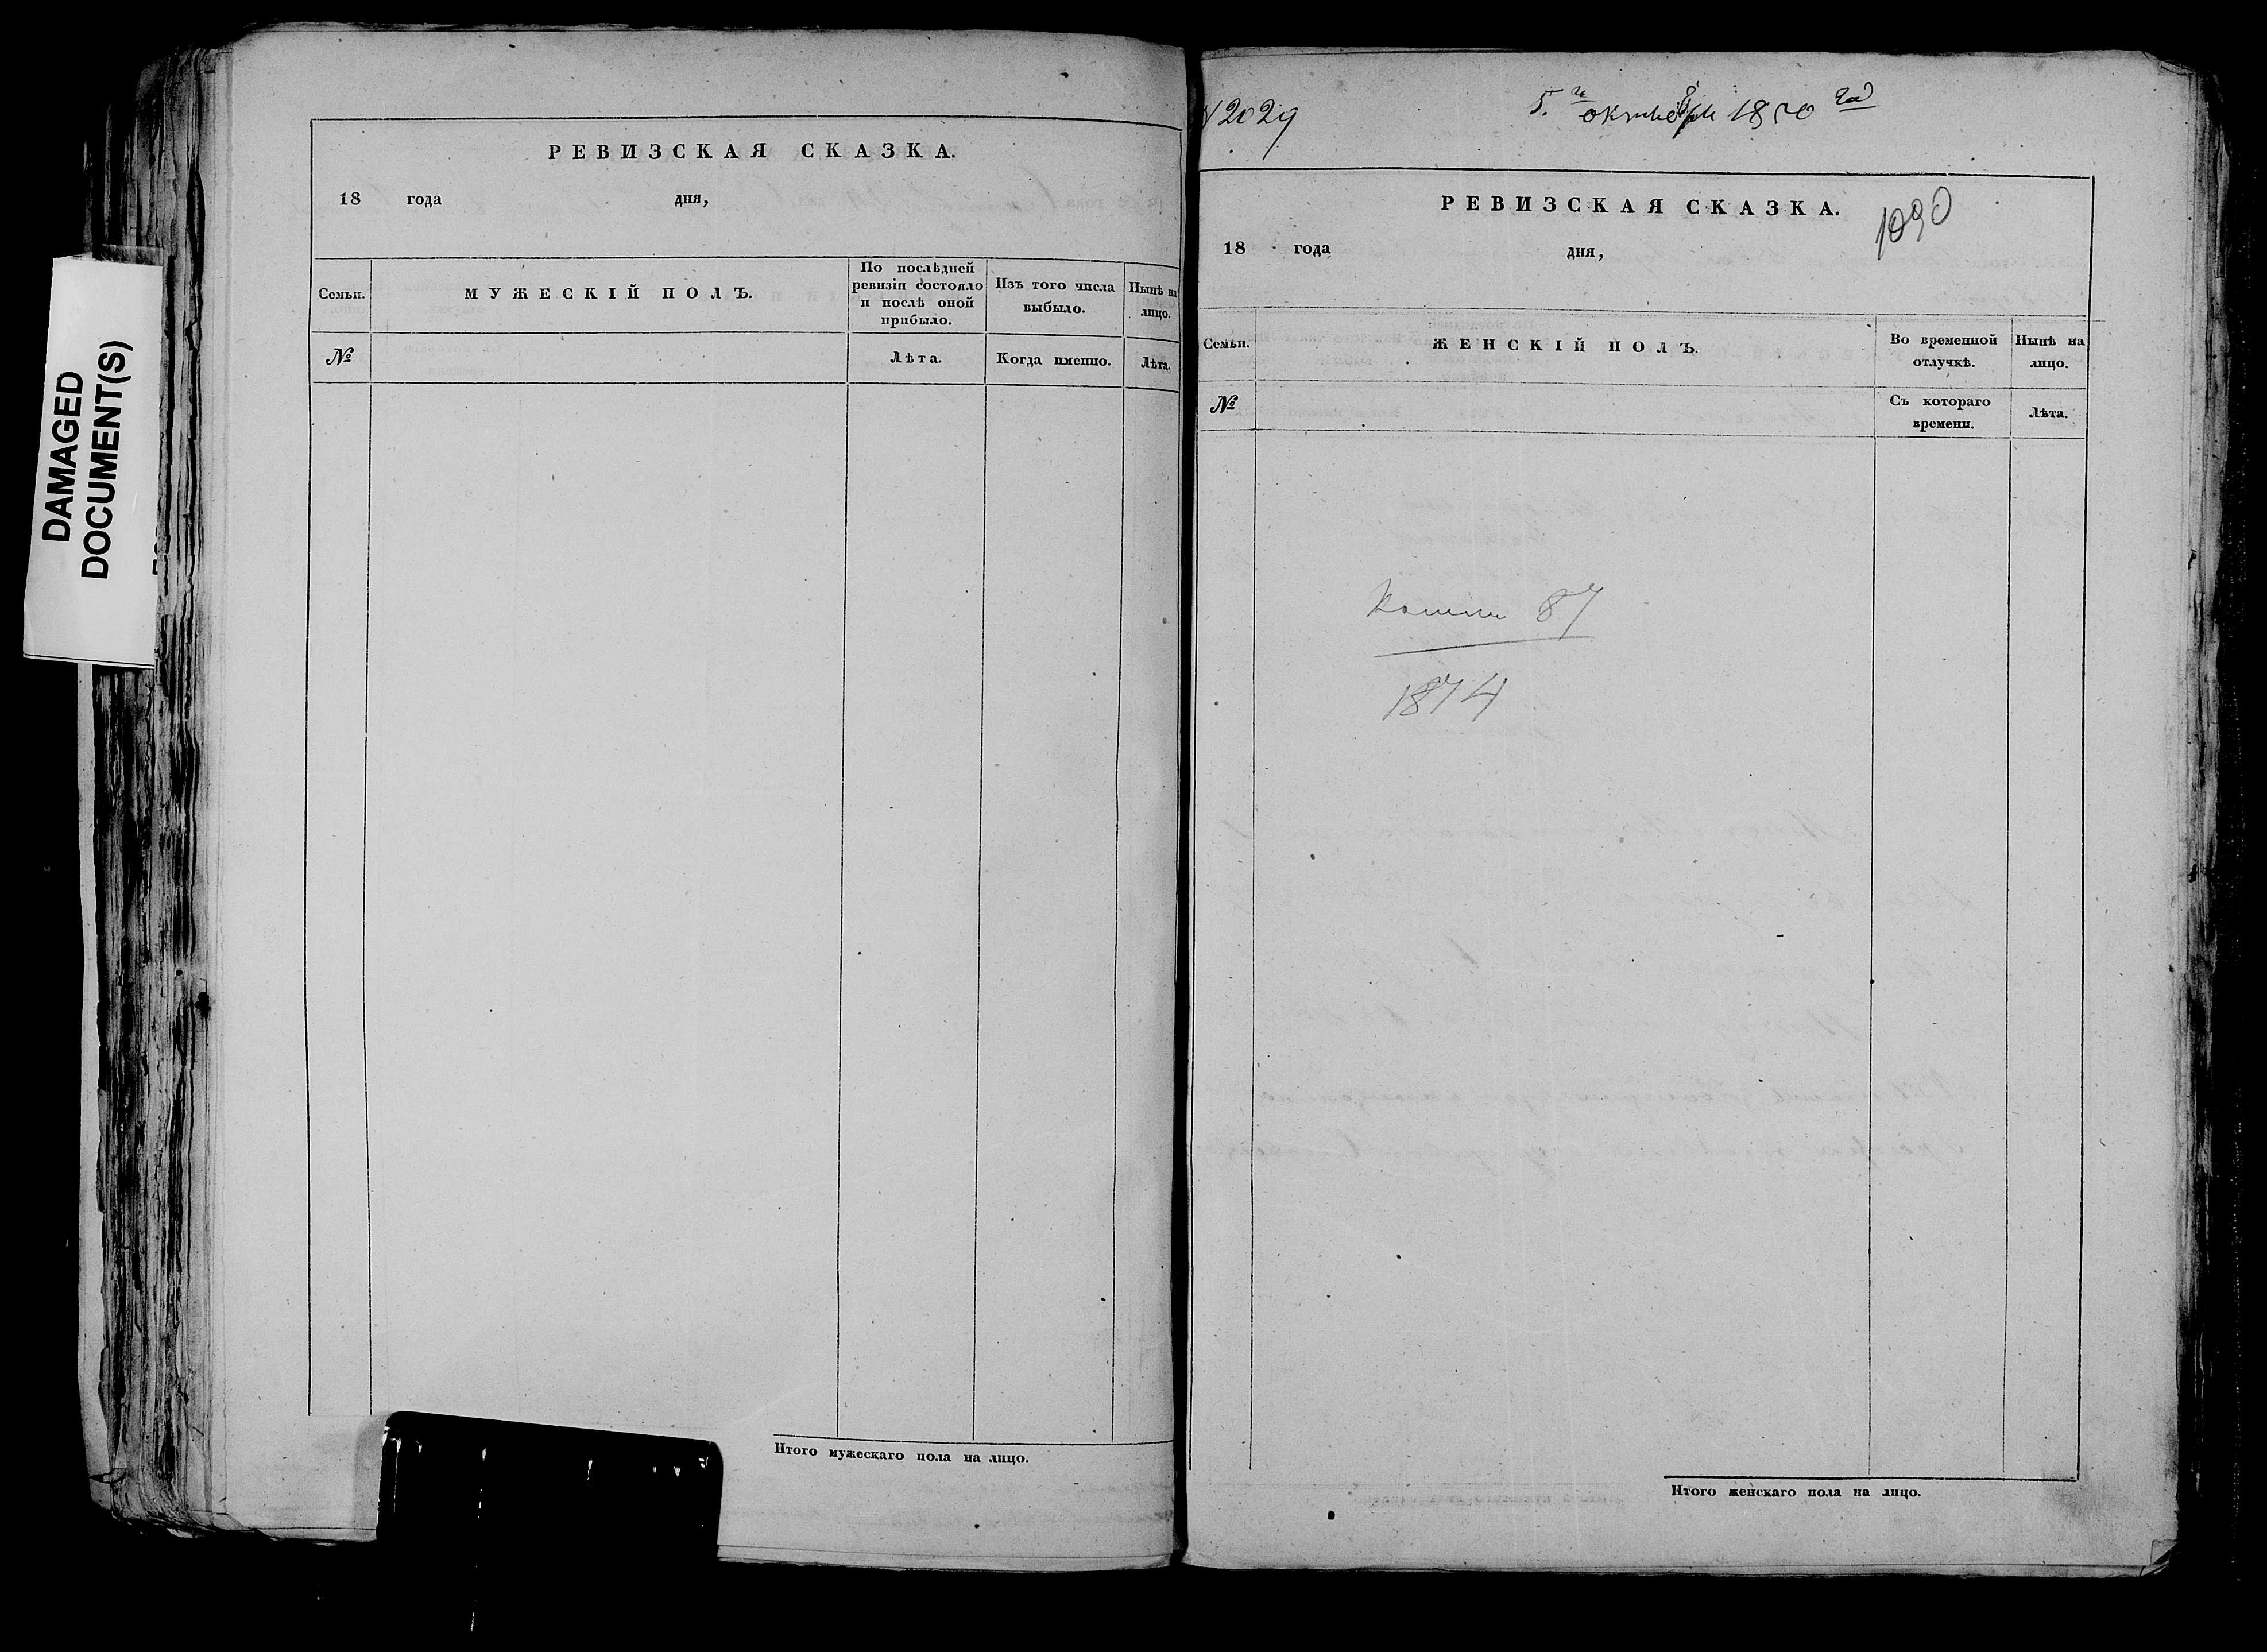 DAMAGED
DOCUMENT(S)
РЕВИЗСКАЯ СКАЗКА.
18 года дня,
Семьи.
МУЖЕСКІЙ ПОЛЪ.
По послѣдней
ревизіи состояло
и послѣ оной
прибыло.
Изъ того числа
выбыло.
Нынѣ на
лицо.
№
Лѣта.
Когда именно.
Лѣта.
Итого мужескаго пола на лицо.
№ 2029
5.го октября 1850 год
РЕВИЗСКАЯ СКАЗКА.
1090
18 года дня,
Семьи.
ЖЕНСКІЙ ПОЛЪ.
Во временной
отлучкѣ.
Нынѣ на
лицо.
№
Съ котораго
времени.
Лѣта.
87
1874
Итого женскаго пола на лицо.